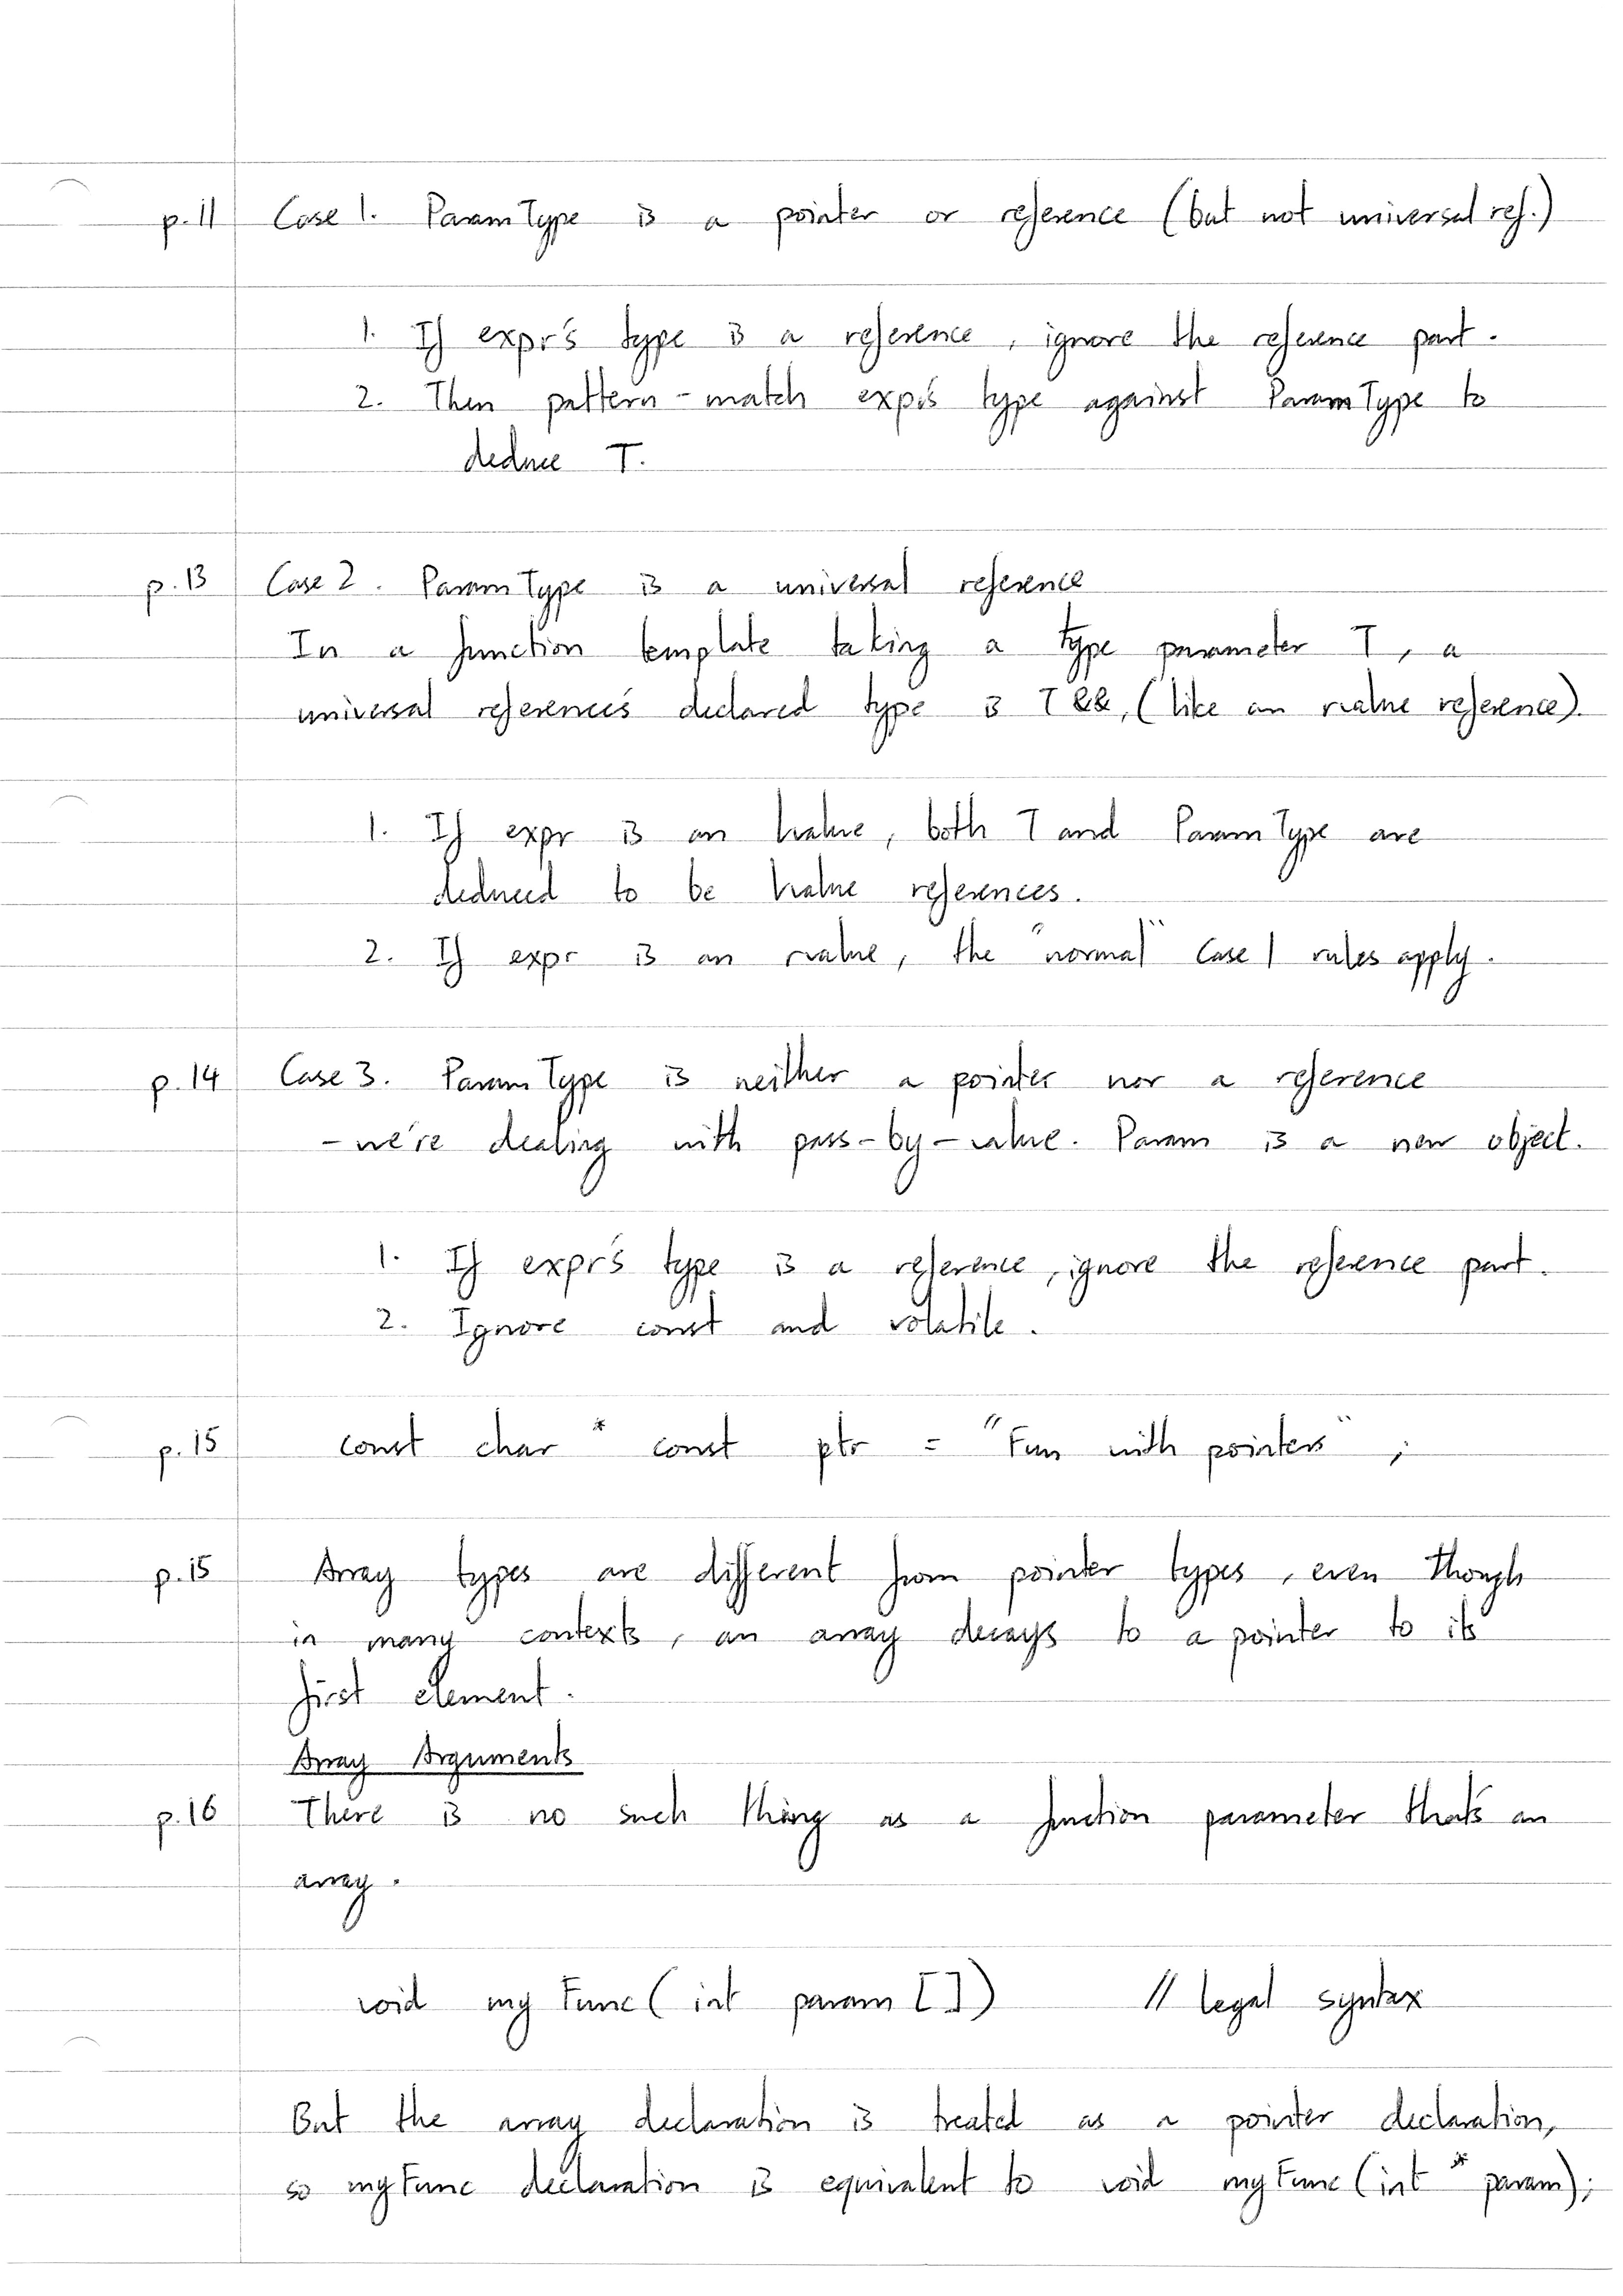 p.11 Case 1. ParamType is a pointer or reference (but not universal ref.)
1. If expr's type is a reference, ignore the reference part.
2. Then pattern-match expr's type against ParamType to
deduce T.
p.13 Case 2. ParamType is a universal reference
In a function template taking a type parameter T, a
universal reference's declared type is T&&, (like an rvalue reference).
1. If expr is an lvalue, both T and ParamType are
deduced to be lvalue references.
2. If expr is an rvalue, the "normal" Case 1 rules apply.
p.14 Case 3. ParamType is neither a pointer nor a reference
- we're dealing with pass-by-value. Param is a new object.
1. If expr's type is a reference, ignore the reference part.
2. Ignore const and volatile.
p.15 const char * const ptr = "Fun with pointers" ;
p.15 Array types are different from pointer types, even though
in many contexts, an array decays to a pointer to its
first element.
Array Arguments
p.16 There is no such thing as a function parameter that's an
array.
void myFunc(int param []) // legal syntax
But the array declaration is treated as a pointer declaration,
so myFunc declaration is equivalent to void myFunc(int * param);